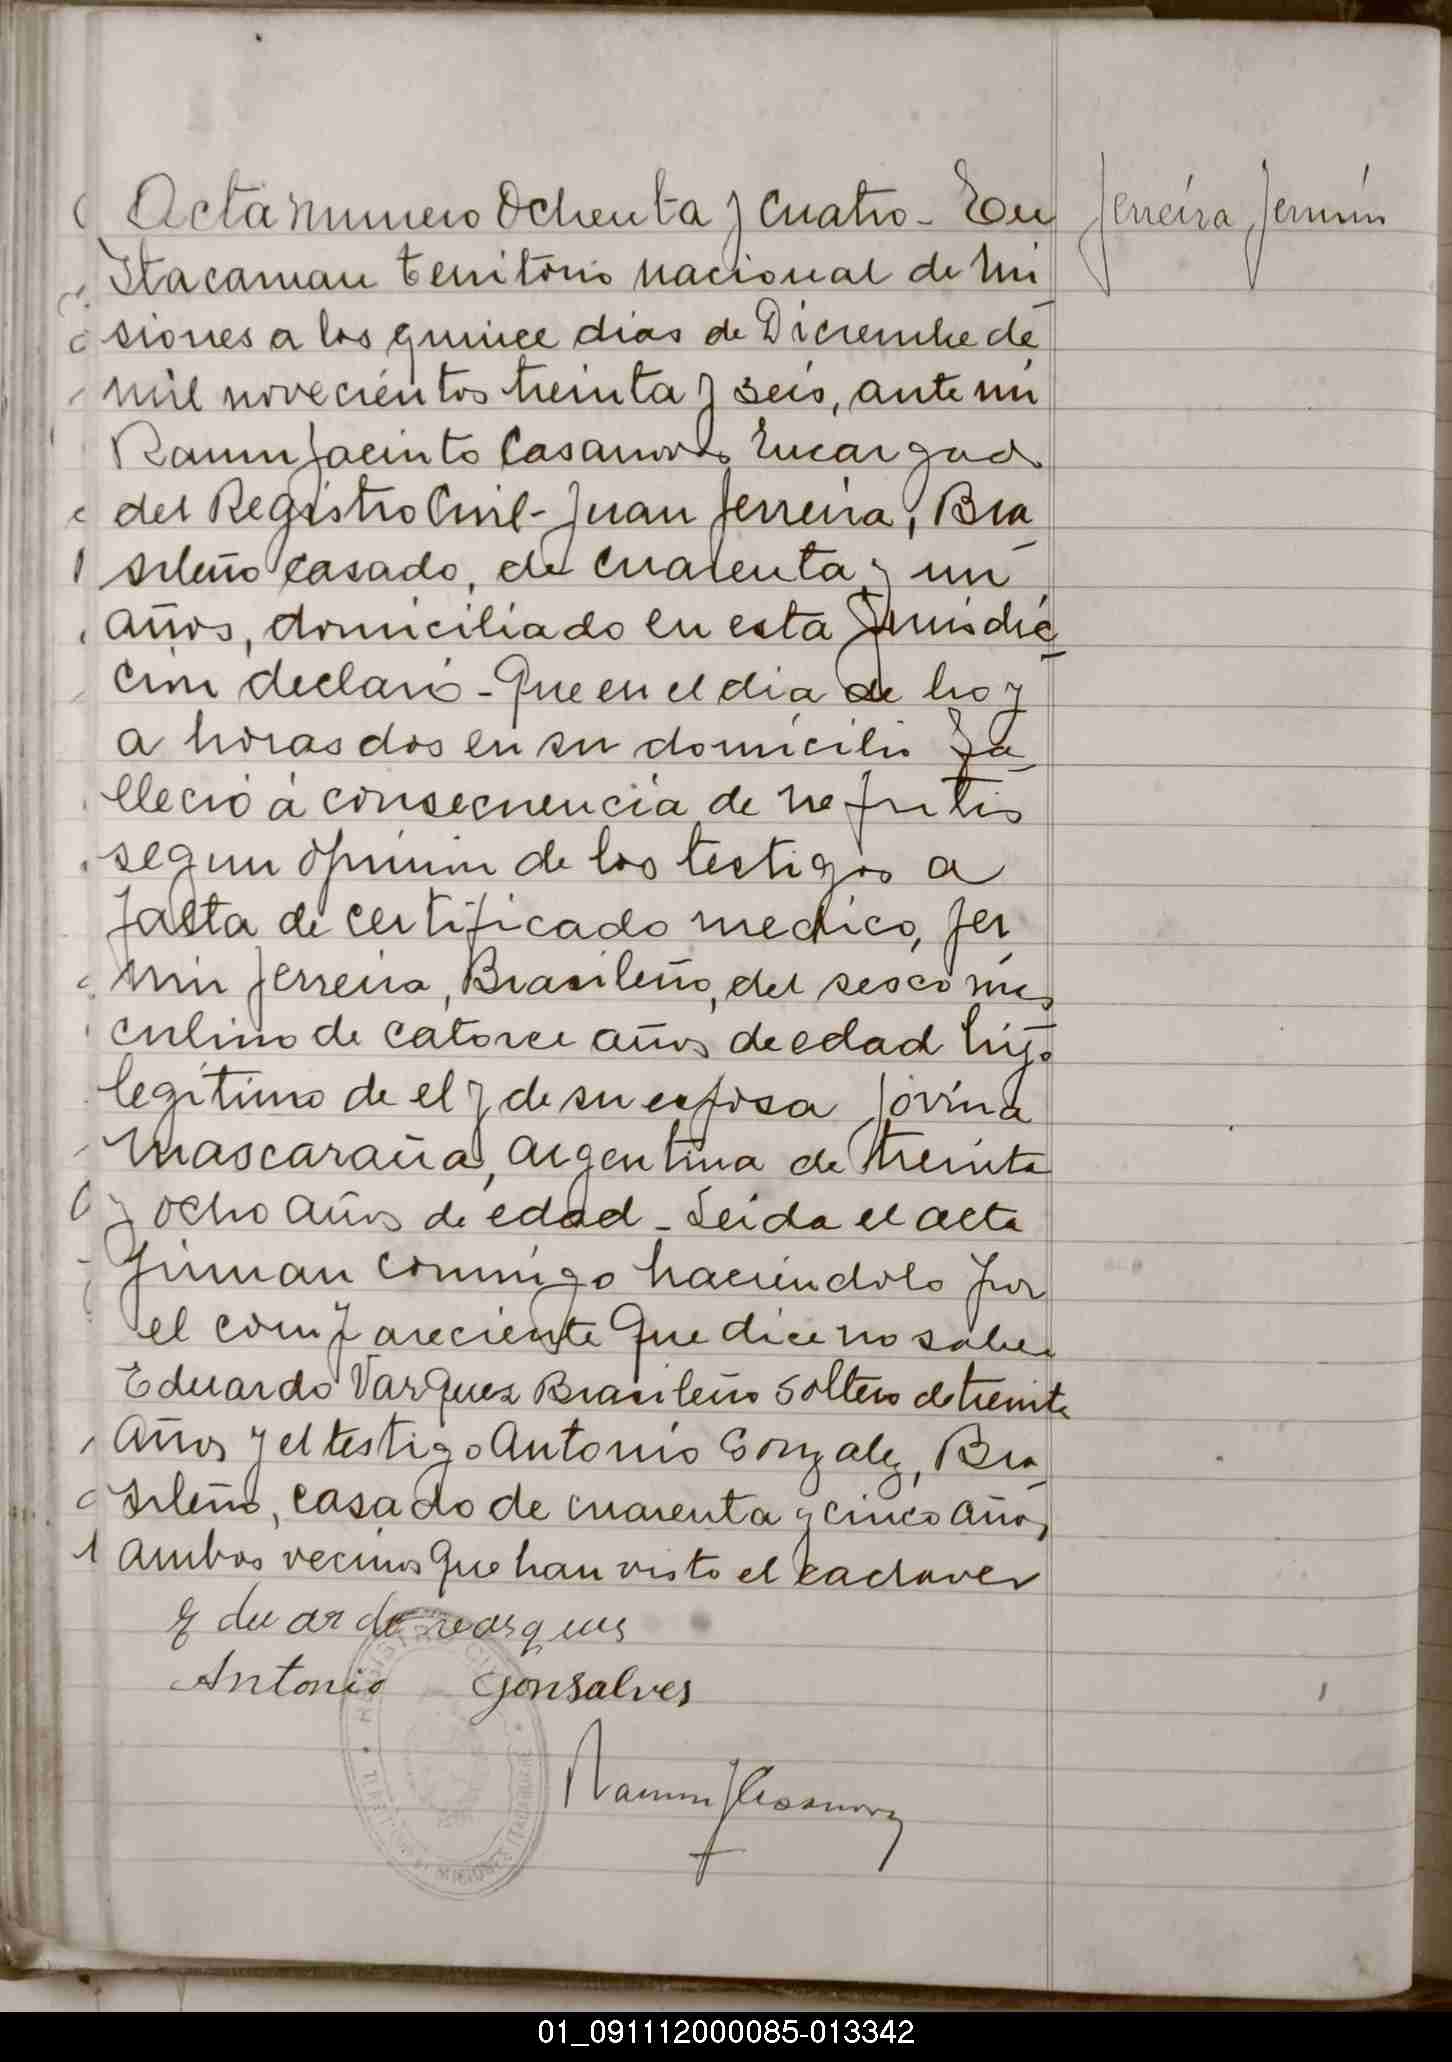 Acta numero Ochenta y cuatro - En
Ferreira Fermin
Itacaruare territorio nacional de Mi
siones a los quince dias de Diciembre de
mil novecientos treinta y seis, ante mi
Ramon Jacinto Casanova Encargado
del Registro Civil - Juan Ferreira, Bra
sileño casado, de cuarenta y un
años, domiciliado en esta Jurisdic
cion declaró - Que en el dia de hoy
a horas dos en su domicilio fa
lleció á consecuencia de nefritis
segun opinion de los testigos a
falta de certificado medico, Fer
min Ferreira, Brasileño, del sexo mas
culino de catorce años de edad hijo
legitimo de el y de su esposa Jovina
Mascaraña, Argentina de treinta
y ocho años de edad - Leida el acta
firman conmigo haciendolo por
el compareciente que dice no saber
Eduardo Varquez Brasileño soltero de treinta
años y el testigo Antonio Gonzalez, Bra
sileño, casado de cuarenta y cinco años,
ambos vecinos que han visto el cadaver
Eduardo varques
Antonio Gonsalves
Ramon J Casanova
REGISTRO CIVIL
MISIONES
01_091112000085-013342